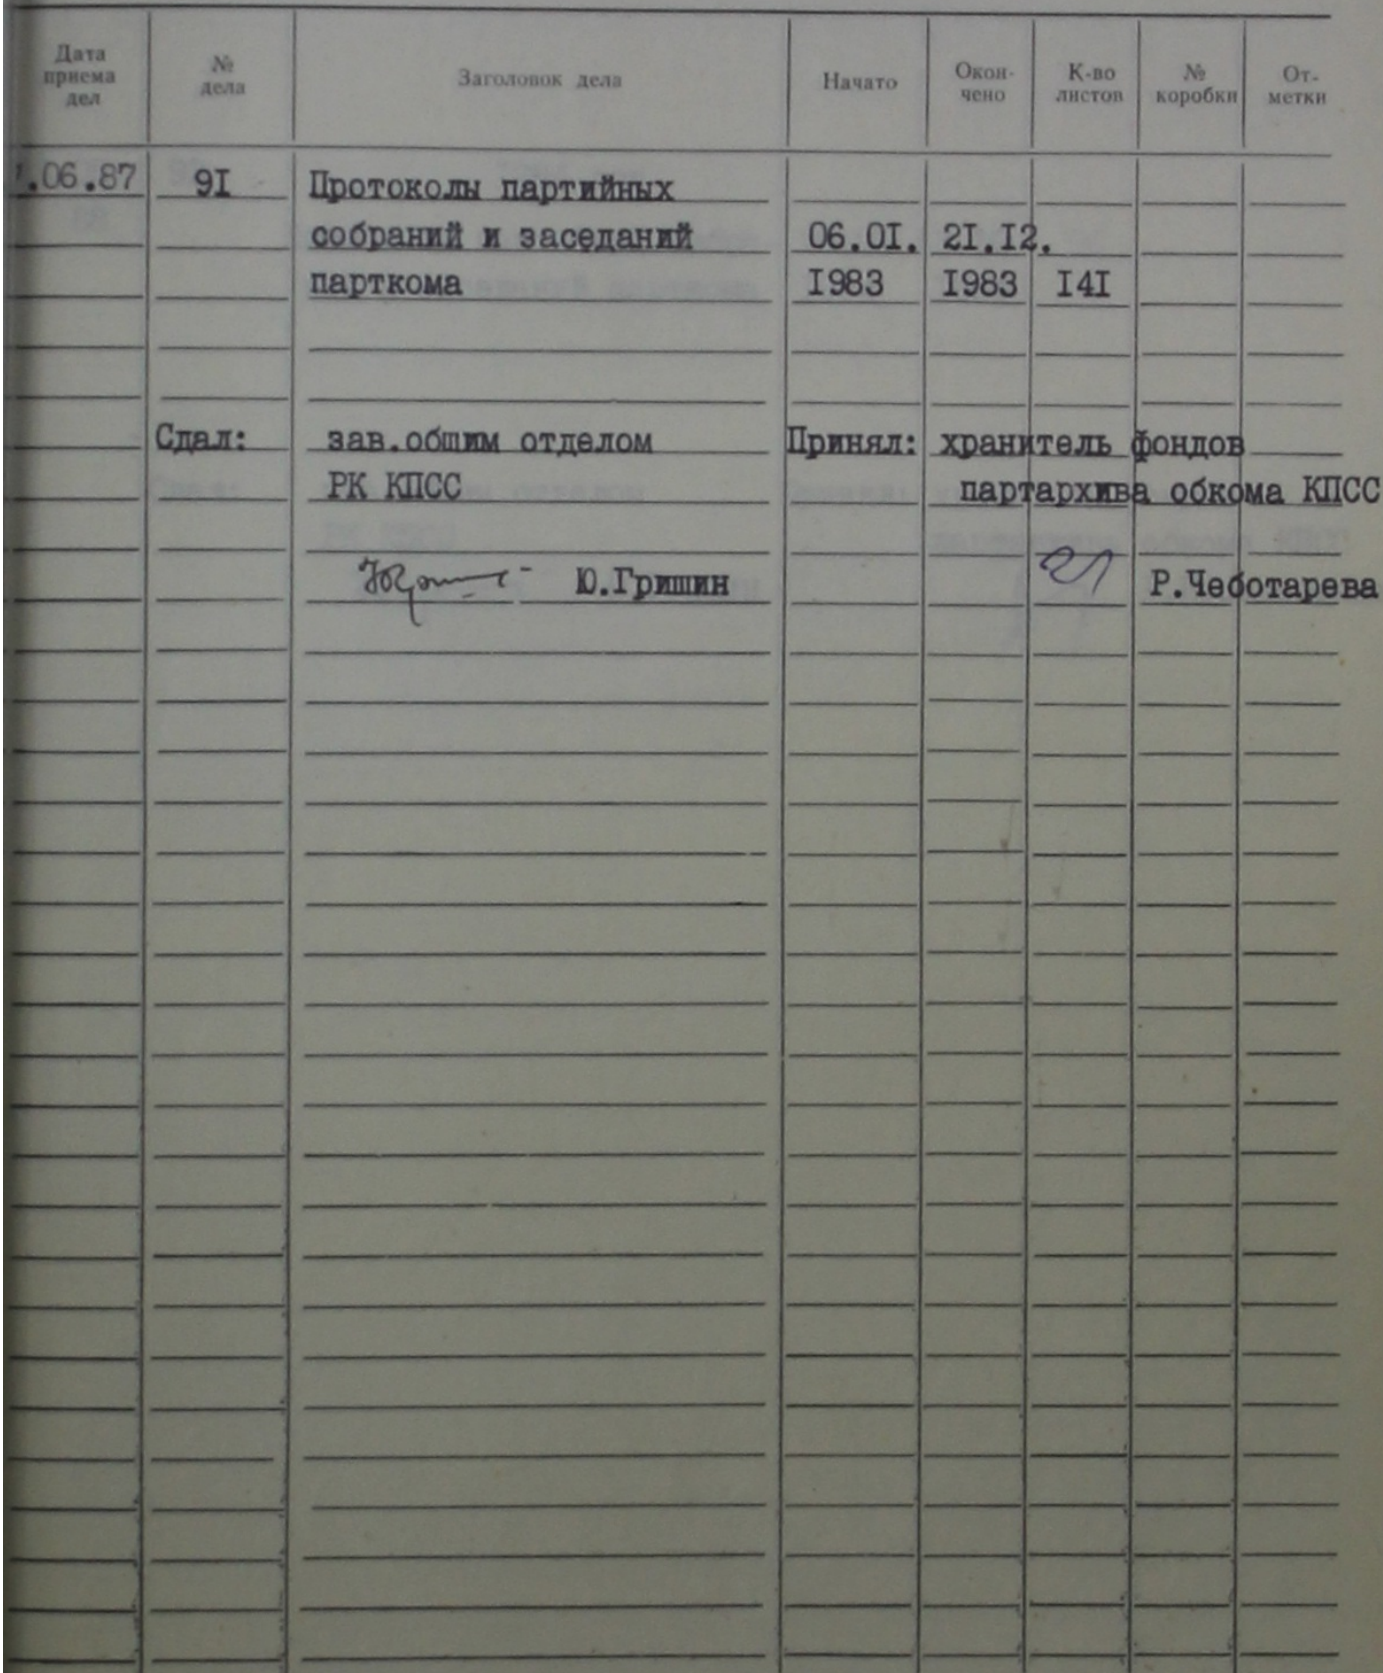 Дата приема дел № дела Заголовок дела Начато Окон-чено К-во листов № коробки От-метки
.06.87 9I Протоколы партийных
собраний и заседаний 06.0I. 2I.I2.
парткома I983 I983 I4I
Сдал: зав.общим отделом Принял: хранитель фондов
РК КПСС партархива обкома КПСС
Ю.Гришин Р.Чеботарева